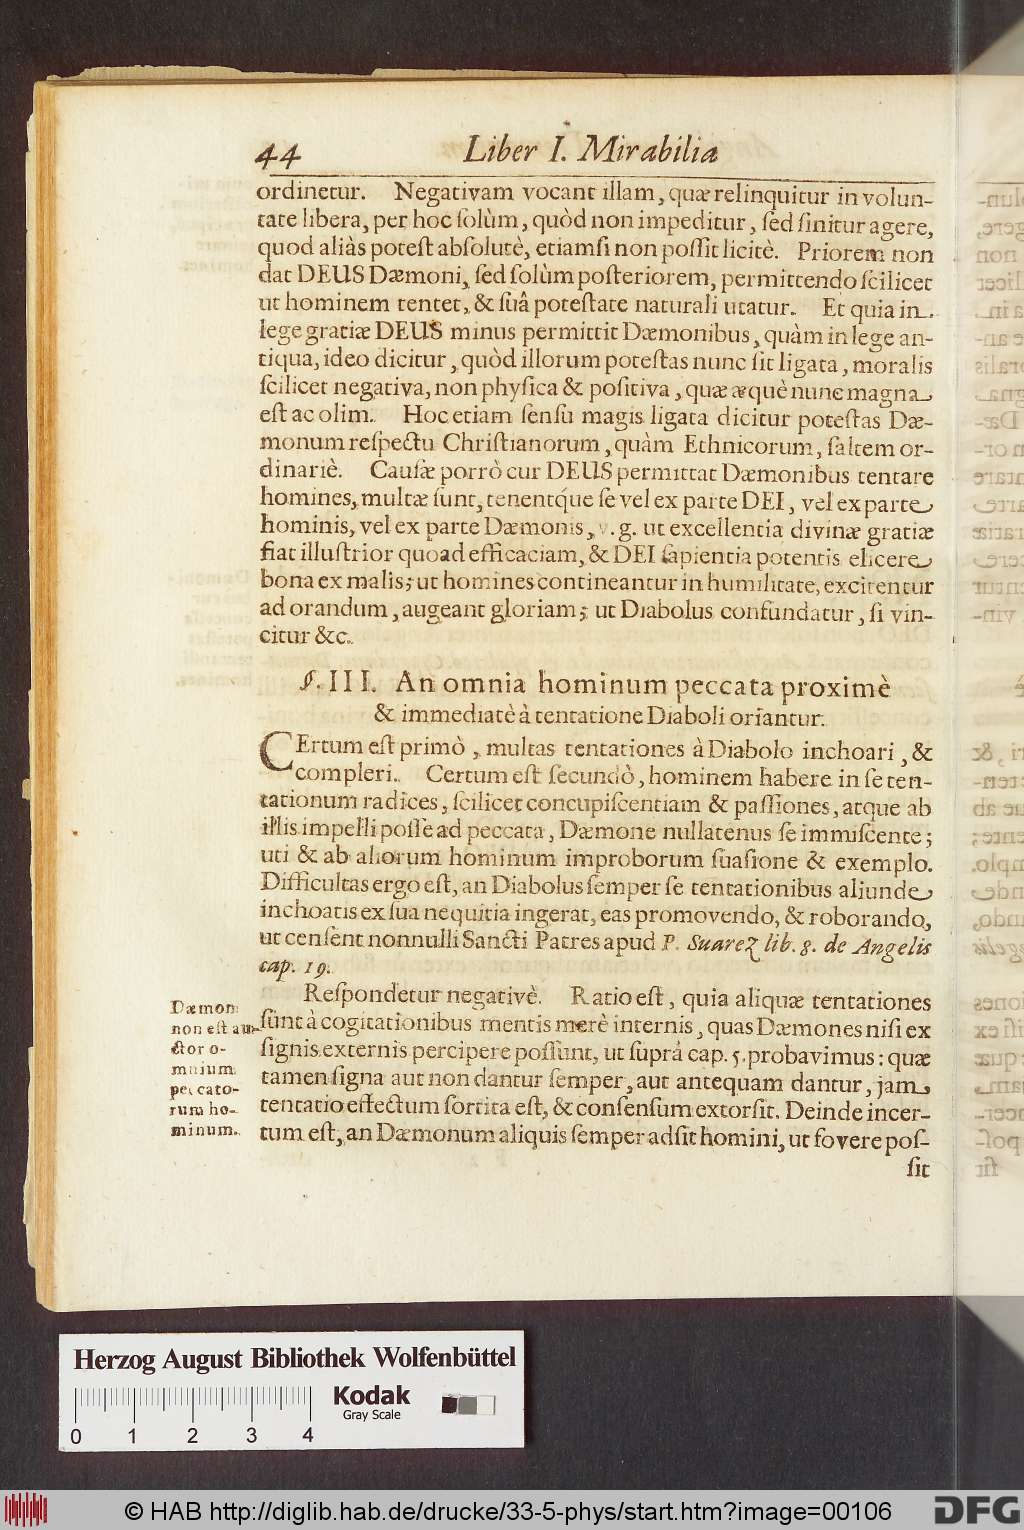 44 Liber I. Mirabilia
ordinetur. Negativam vocant illam, quæ relinquitur in volun-
tate libera, per hoc ſolùm, quòd non impeditur, ſed ſinitur agere,
quod aliàs poteſt abſolutè, etiamſi non poſſit licitè. Priorem non
dat DEUS Dæmoni, ſed ſolùm poſteriorem, permittendo ſcilicet
ut hominem tentet, & ſuâ poteſtate naturali utatur. Et quia in
lege gratiæ DEUS minus permittit Dæmonibus, quàm in lege an-
tiqua, ideo dicitur, quòd illorum poteſtas nunc ſit ligata, moralis
ſcilicet negativa, non phyſica & poſitiva, quæ æquè nunc magna
eſt ac olim. Hoc etiam ſenſu magis ligata dicitur poteſtas Dæ-
monum reſpectu Chriſtianorum, quàm Ethnicorum, ſaltem or-
dinariè. Cauſæ porrò cur DEUS permittat Dæmonibus tentare
homines, multæ ſunt, tenentq́ue ſe vel ex parte DEI, vel ex parte
hominis, vel ex parte Dæmonis, v. g. ut excellentia divinæ gratiæ
fiat illuſtrior quoad efficaciam, & DEI ſapientia potentis elicere
bona ex malis; ut homines contineantur in humilitate, excitentur
ad orandum, augeant gloriam; ut Diabolus confundatur, ſi vin-
citur &c.
§. III. An omnia hominum peccata proximè
& immediatè à tentatione Diaboli oriantur.
CErtum eſt primò, multas tentationes à Diabolo inchoari, &
compleri. Certum eſt ſecundò, hominem habere in ſe ten-
tationum radices, ſcilicet concupiſcentiam & paſſiones, atque ab
illis impelli poſſe ad peccata, Dæmone nullatenus ſe immiſcente;
uti & ab aliorum hominum improborum ſuaſione & exemplo.
Difficultas ergo eſt, an Diabolus ſemper ſe tentationibus aliunde
inchoatis ex ſua nequitia ingerat, eas promovendo, & roborando,
ut cenſent nonnulli Sancti Patres apud P. Suarez lib. 8. de Angelis
cap. 19.
Reſpondetur negativè. Ratio eſt, quia aliquæ tentationes
ſunt à cogitationibus mentis merè internis, quas Dæmones niſi ex
ſignis externis percipere poſſunt, ut ſuprà cap. 5. probavimus: quæ
tamen ſigna aut non dantur ſemper, aut antequam dantur, jam
tentatio effectum ſortita eſt, & conſenſum extorſit. Deinde incer-
tum eſt, an Dæmonum aliquis ſemper adſit homini, ut fovere poſ-
ſit
Dæmon
non eſt au-
ctor o-
mnium
peccato-
rum ho-
minum.
Herzog August Bibliothek Wolfenbüttel
Kodak
Gray Scale
0 1 2 3 4
© HAB http://diglib.hab.de/drucke/33-5-phys/start.htm?image=00106
DFG